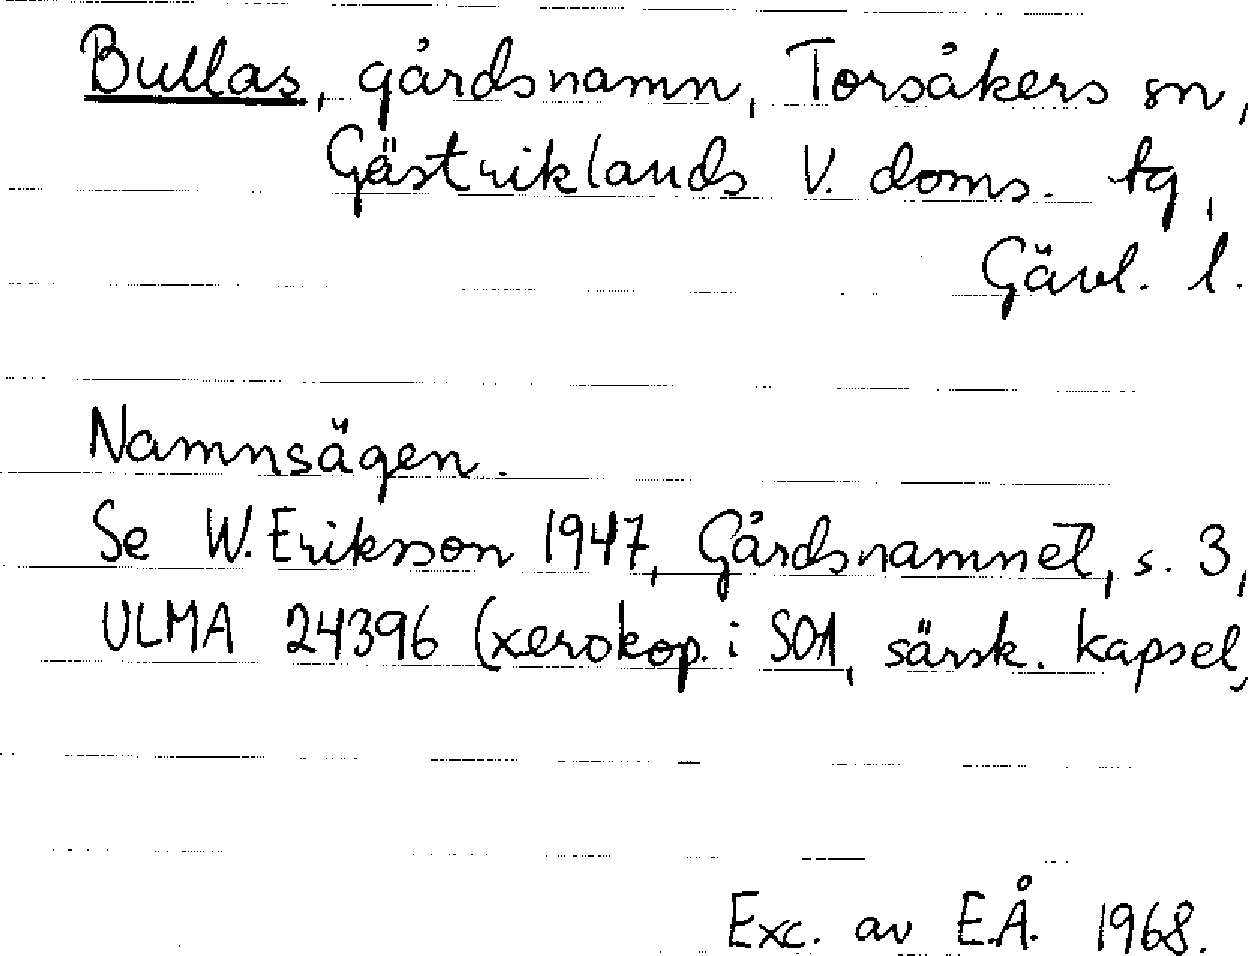 Bullas, gårdsnamn, Torsåkers sn,
Gästriklands V. doms. tg,
Gävl. l.
Namnsägen.
Se W. Eriksson 1947, Gårdsnamnet, s. 3,
ULMA 24396 (xerokop. i SOA, särsk. kapsel,
Exc. av E.Å. 1968.